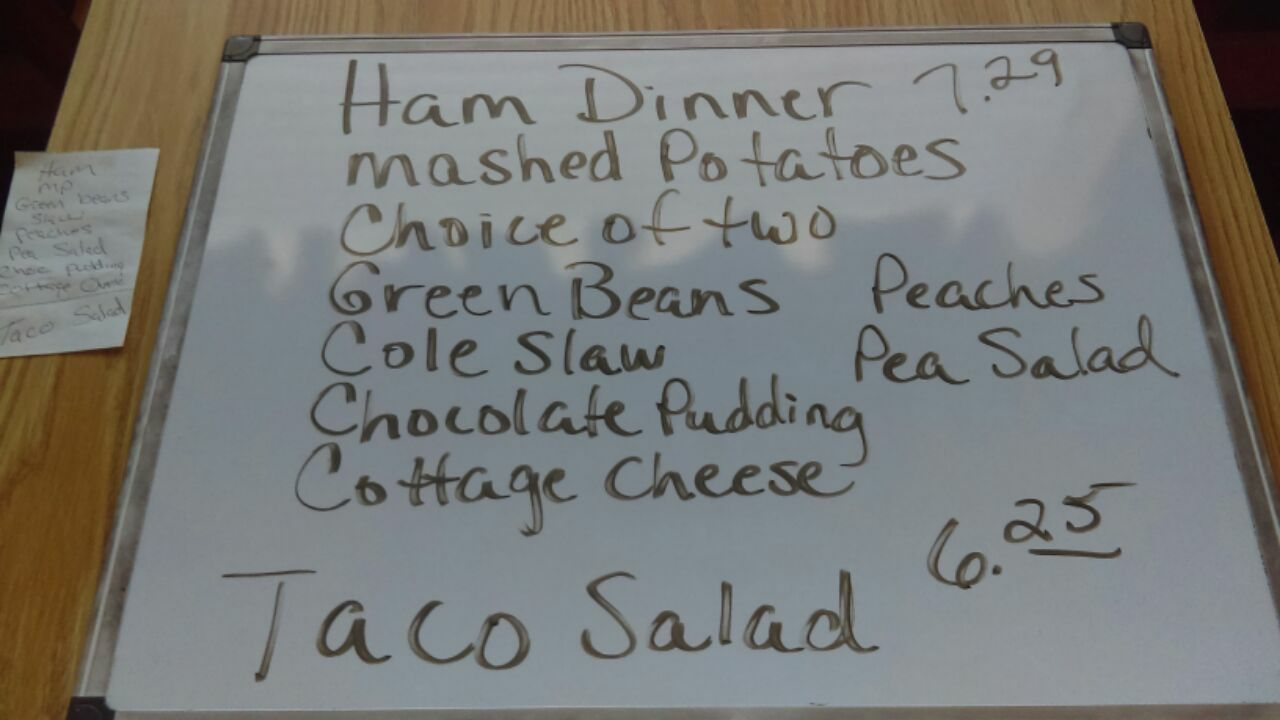 Ham Dinner 7.29
mashed Potatoes
Choice of two
Green Beans Peaches
Cole Slaw Pea Salad
Chocolate Pudding
Cottage Cheese
6.25
Taco Salad
Ham
MP
Green beans
Slaw
Peaches
Pea Salad
Pudding
Cottage
Taco Salad